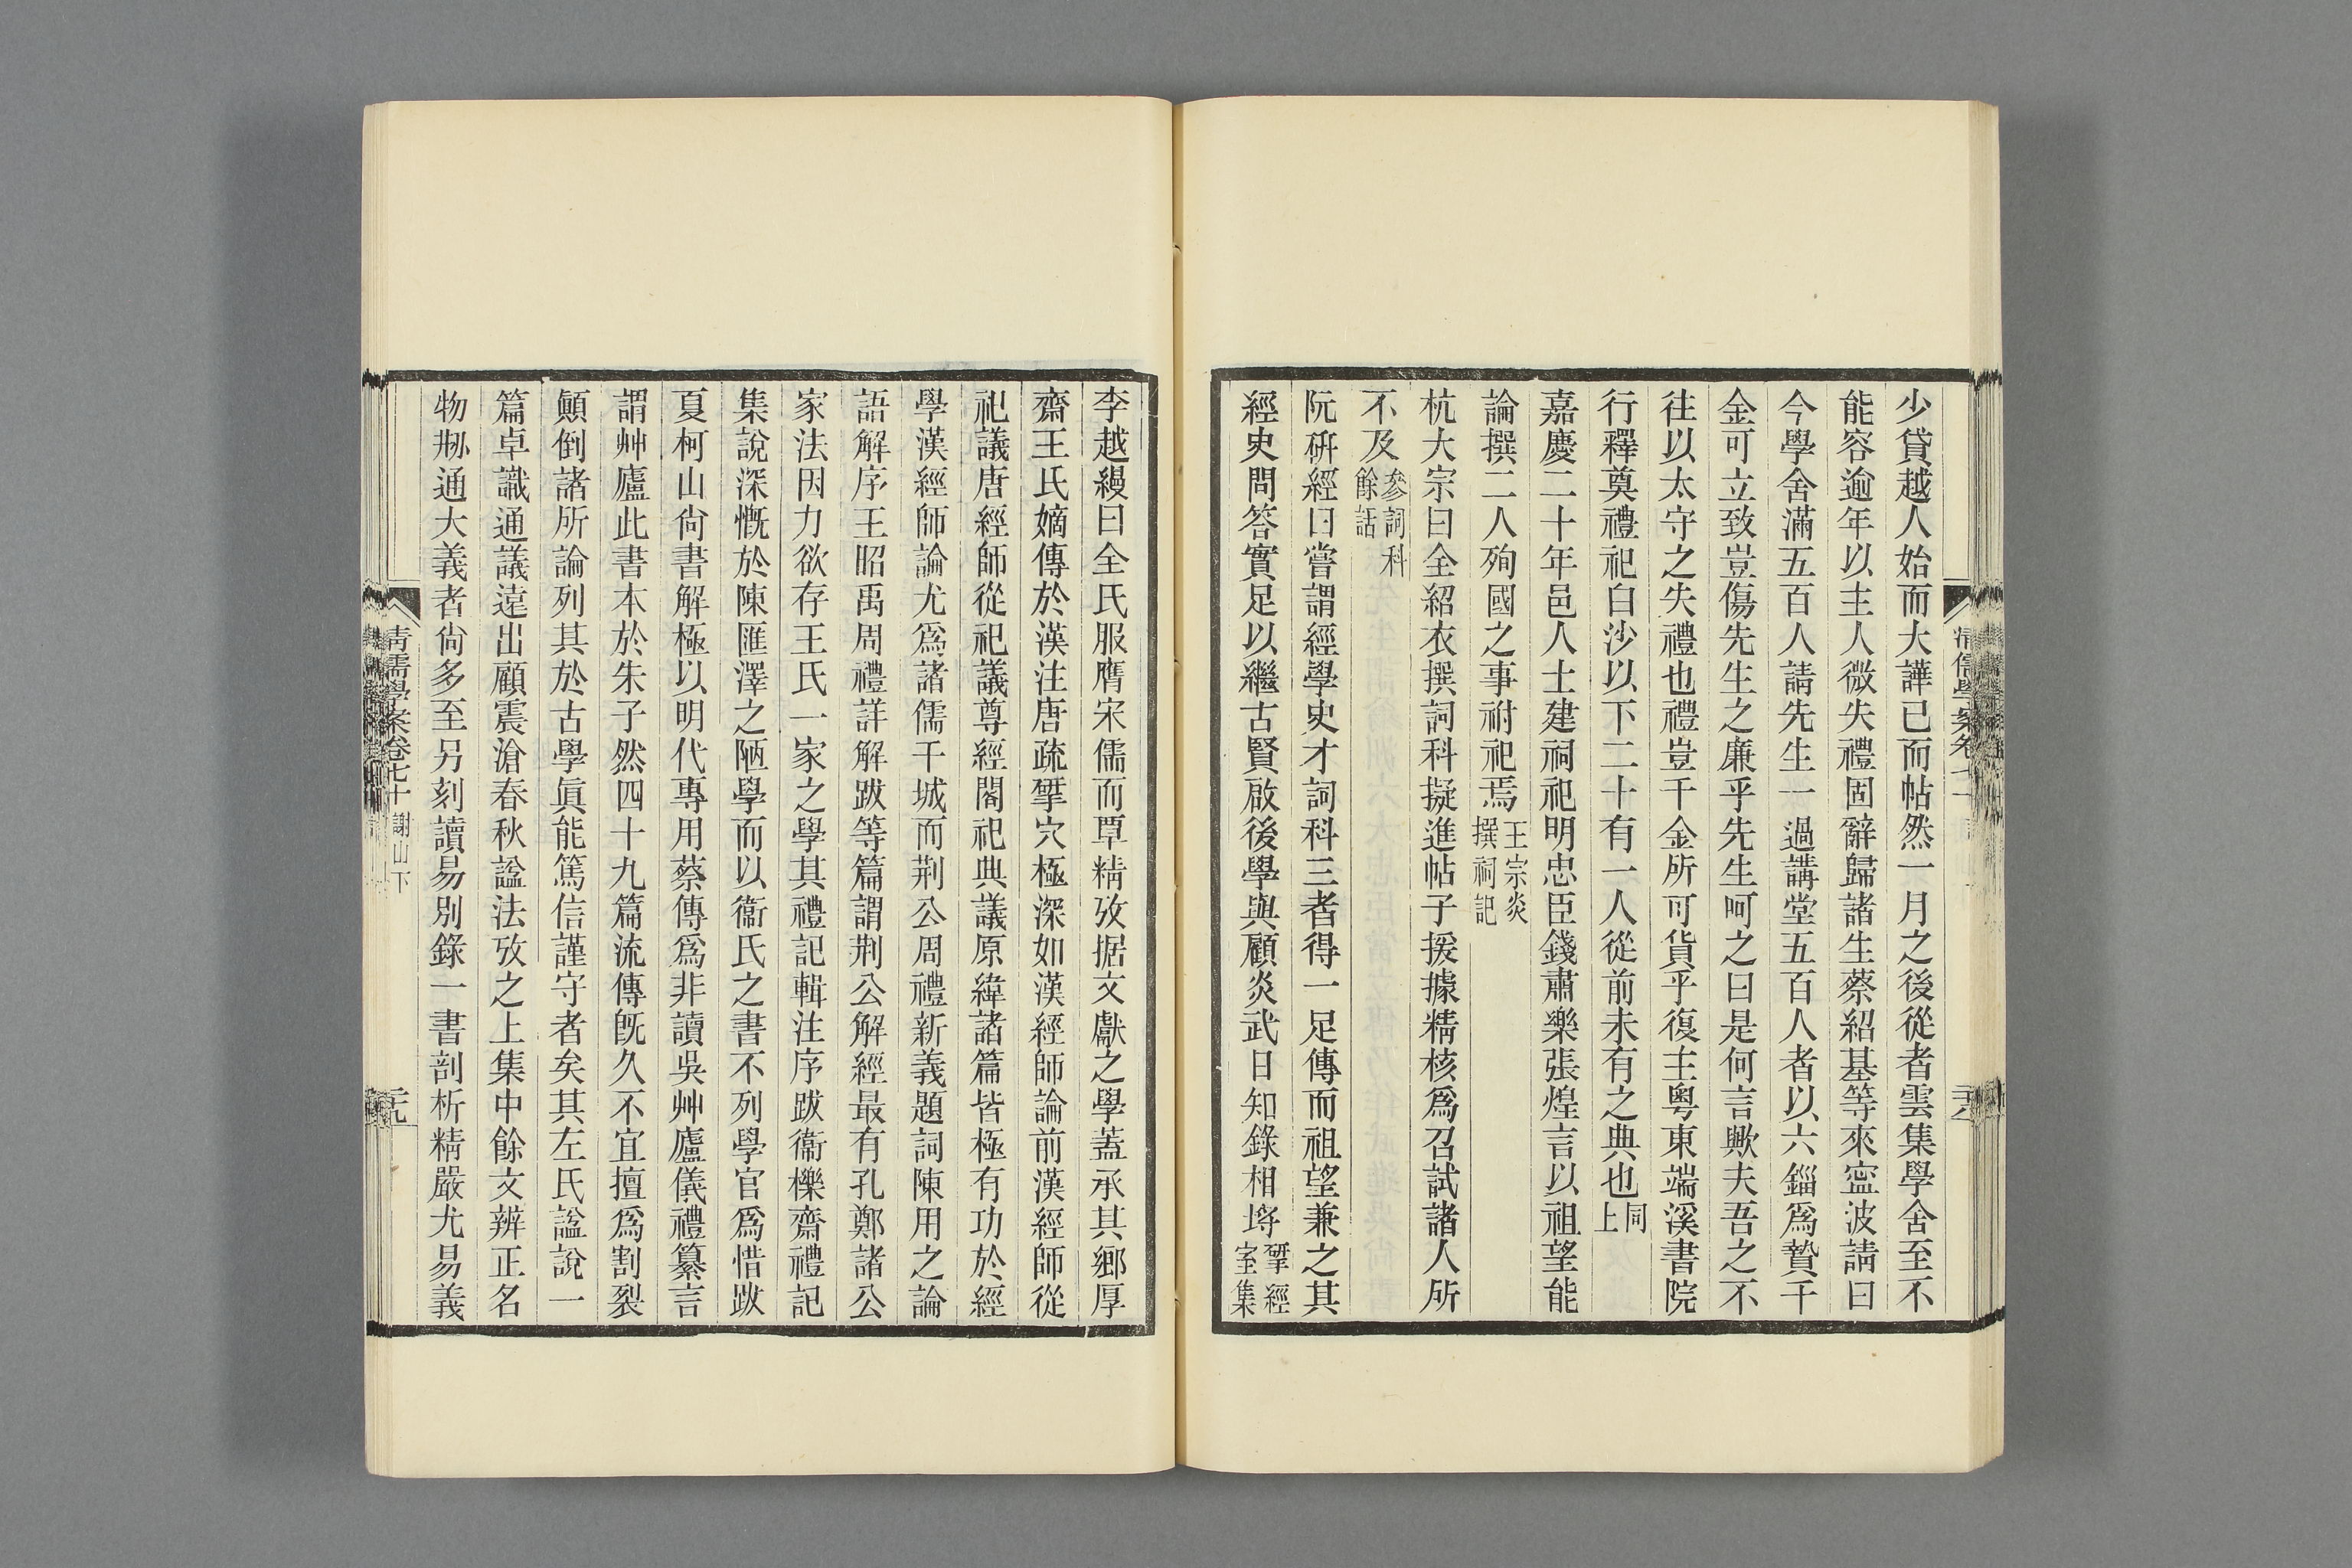 少貸越人始而大譁已而帖然一月之後從者雲集學舍至不
能容逾年以主人微失禮固辭歸諸生蔡紹基等來寍波請曰
今學舍滿五百人請先生一過講堂五百人者以六錙爲贄千
金可立致豈傷先生之廉乎先生呵之曰是何言歟夫吾之不
往以太守之失禮也禮豈千金所可貨乎復主粤東端溪書院
行釋奠禮祀白沙以下二十有一人從前未有之典也同上
嘉慶二十年邑人士建祠祀明忠臣錢肅樂張煌言以祖望能
論撰二人殉國之事祔祀焉王宗炎撰祠記
杭大宗曰全紹衣撰詞科擬進帖子援據精核爲召試諸人所
不及參詞科餘話
阮硏經曰嘗謂經學史才詞科三者得一足傳而祖望兼之其
經史問答實足以繼古賢啟後學與顧炎武日知錄相埒揅經室集
李越縵曰全氏服膺宋儒而覃精攷据文獻之學蓋承其鄉厚
齋王氏嫡傳於漢注唐疏揅穴極深如漢經師論前漢經師從
祀議唐經師從祀議尊經閣祀典議原緯諸篇皆極有功於經
學漢經師論尤爲諸儒干城而荆公周禮新義題詞陳用之論
語解序王昭禹周禮詳解跋等篇謂荆公解經最有孔鄭諸公
家法因力欲存王氏一家之學其禮記輯注序跋衞櫟齋禮記
集說深慨於陳匯澤之陋學而以衞氏之書不列學官爲惜跋
夏柯山尙書解極以明代專用蔡傳爲非讀吳艸廬儀禮纂言
謂艸廬此書本於朱子然四十九篇流傳旣久不宜擅爲割裂
顚倒諸所論列其於古學眞能篤信謹守者矣其左氏諡說一
篇卓識通議遠出顧震滄春秋諡法攷之上集中餘文辨正名
物剙通大義者尙多至另刻讀易別錄一書剖析精嚴尤易義
清儒學案卷七十 謝山下 二十九